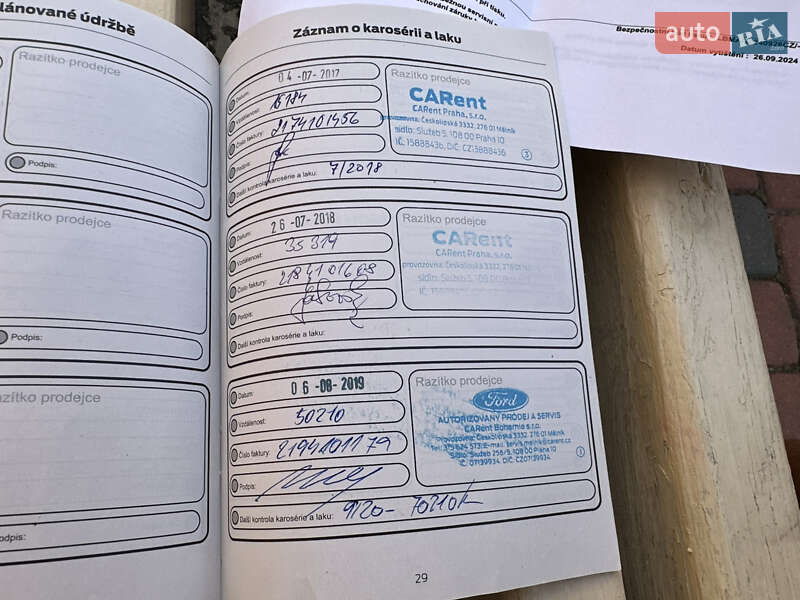 lánované údržbě
Razítko prodejce
Podpis:
Razítko prodejce
Podpis:
zítko prodejce
Podpis:
při tisku.
servisní
Bezpečnostn
Datum vytištění : 26.09.2024
auto RIA
Záznam o karosérii a laku
Datum: 04-07-2017
Vzdálenost:
Číslo faktury: 2174101456
Podpis:
Další kontrola karosérie a laku: 7/2018
Razítko prodejce
CARent
CARent Praha, s.r.o.
provozovna: Českolipská 3332, 276 01 Mělník
sídlo: Služeb 5, 108 00 Praha 10
Datum: 26-07-2018
Vzdálenost: 35319
Číslo faktury:
Podpis:
Další kontrola karosérie a laku:
Razítko prodejce
CARent
CARent Praha, s.r.o.
provozovna: Českolipská 3332, 276 01 Mělník
sídlo: Služeb 5, 108 00 Praha 10
Datum: 06-08-2019
Vzdálenost: 50210
Číslo faktury: 2194101179
Podpis:
Další kontrola karosérie a laku: 9/20-
Razítko prodejce
Ford
AUTORIZOVANÝ PRODEJ A SERVIS
CARent Bohemia s.r.o.
provozovna: Českolipská 3332, 276 01 Mělník
Sídlo: Služeb 256/5, 108 00 Praha 10
IČ: 07139934, DIČ: CZ07139934
29